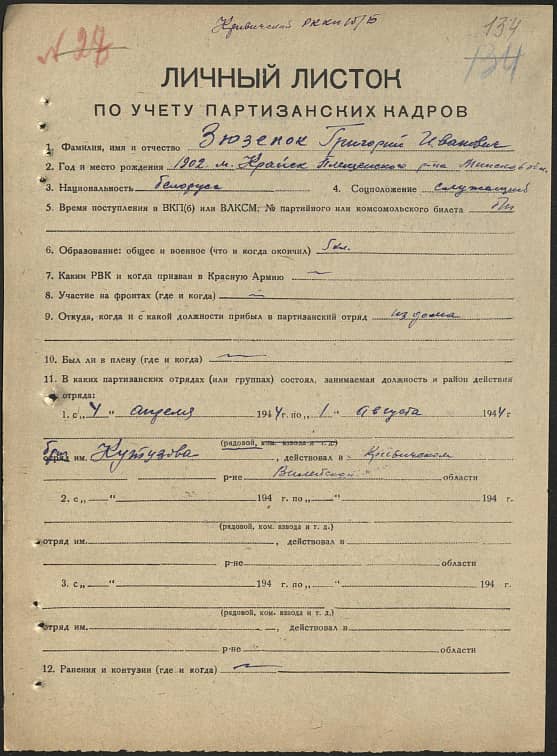 134
№ 28
134
ЛИЧНЫЙ ЛИСТОК
ПО УЧЕТУ ПАРТИЗАНСКИХ КАДРОВ
1. Фамилия, имя и отчество Зюзепок Григорий Иванович
2. Год и место рождения 1902 м. Крайск Плещенского р-на Минской обл.
3. Национальность белорусс 4. Соцположение служащий
5. Время поступления в ВКП(б) или ВЛКСМ, № партийного или комсомольского билета
6. Образование: общее и военное (что и когда окончил) 5 кл.
7. Каким РВК и когда призван в Красную Армию —
8. Участие на фронтах (где и когда) —
9. Откуда, когда и с какой должности прибыл в партизанский отряд из дома
10. Был ли в плену (где и когда) —
11. В каких партизанских отрядах (или группах) состоял, занимаемая должность и район действия
отряда:
1. с „4“ апреля 1944 г. по „1“ августа 1944 г
(рядовой, ком. взвода и т. д.)
бриг отряд им. Кутузова, действовал в Кривичском
р-не Вилейской области
2. с „ “ 194 г. по „ “ 194 г.
(рядовой, ком. взвода и т. д.)
отряд им. , действовал в
р-не области
3. с „ “ 194 г. по „ “ 194 г.
(рядовой, ком. взвода и т. д.)
отряд им. , действовал в
р-не области
12. Ранения и контузии (где и когда) —